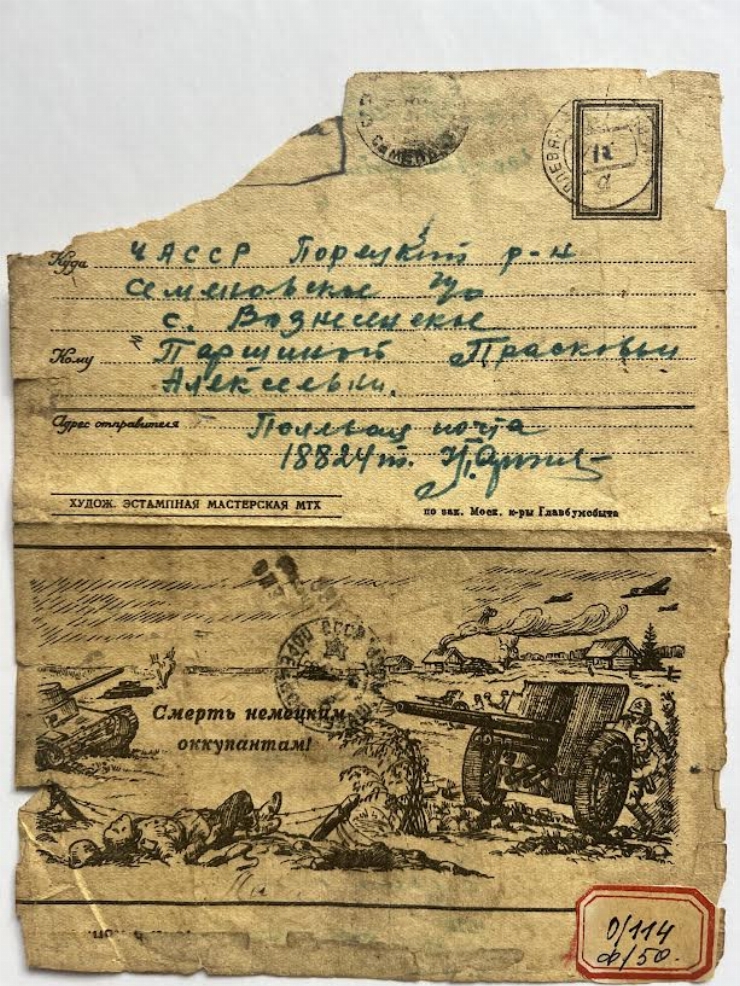 Куда ЧАССР Порецкий р-н
Семеновское п/о
с. Вознесенское
Кому Паршиной Прасковьи
Алексевны.
Адрес отправителя Полевая почта
18824т.
ХУДОЖ. ЭСТАМПНАЯ МАСТЕРСКАЯ МТХ
по зак. Моск. к-ры Главбумсбыта
Смерть немецким
оккупантам!
0/114
ф/50.